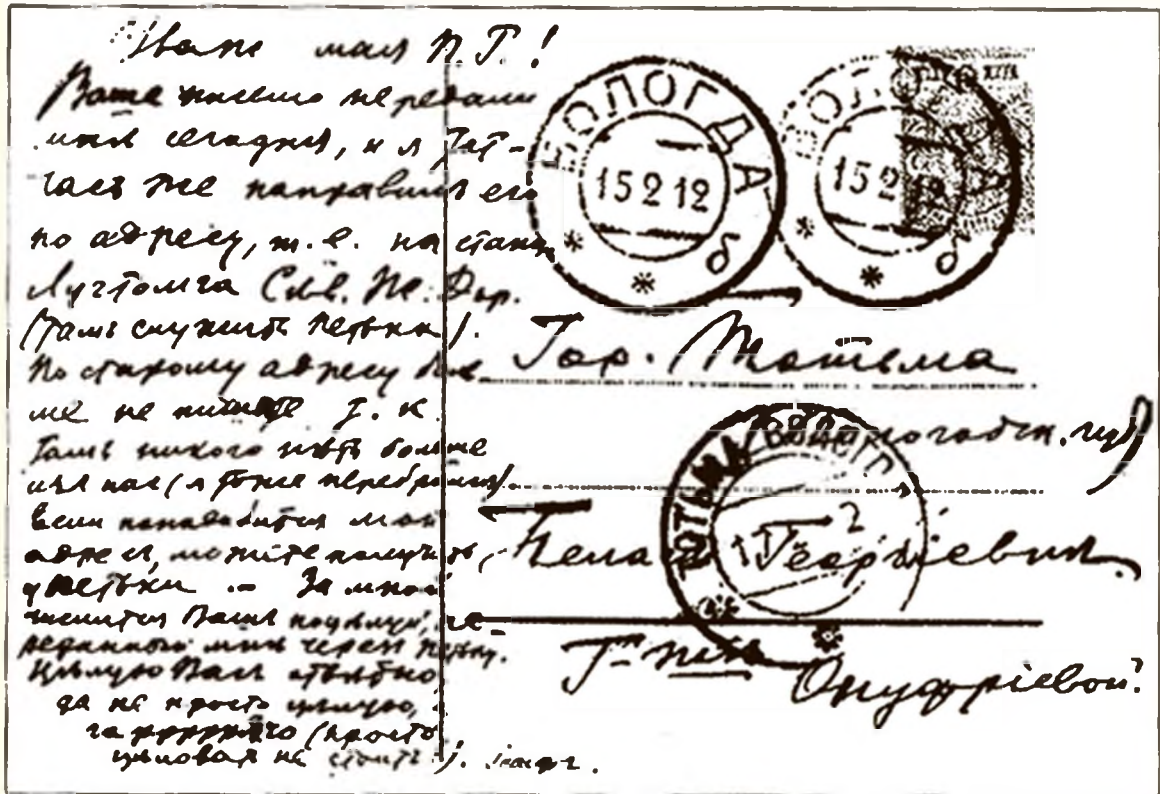 Ваше письмо передали
мнѣ сегодня, и я тот-
часъ же направилъ его
по адресу, т. е.
Лугтомга Сѣв. Же. Дор.
(тамъ служитъ Петька).
По старому адресу боль-
ше не пишите т. к.
тамъ никого нѣтъ больше
изъ нас (я тоже перебрался).
Если понадобится мой
адрес, можете получить
у Петьки. – За мной
числится Вашъ поцѣлуй, пе-
реданный мнѣ через Петьку.
Цѣлую Васъ отвѣтно,
да не просто цѣлую,
а горррячо (просто
цѣловать не стоитъ!). Іосиф.
ВОЛОГДА
15 2 12
б
ВОЛОГДА
15 2 12
б
Гор. Тотьма
Вологодск. губ)
ТОТЬМА ВОЛОГ
Пелагея Георгіевнѣ
Г-жѣ
Онуфріевой.